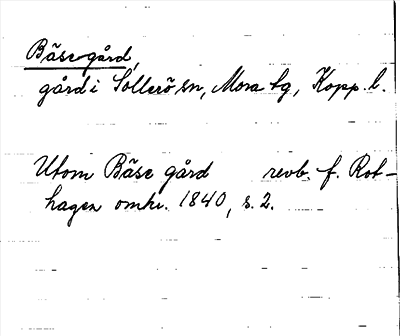 Bäse gård,
gård i Sollerö sn, Mora tg, Kopp. l.
Utom Bäse gård revb. f. Rot-
hagen omkr. 1840, s. 2.